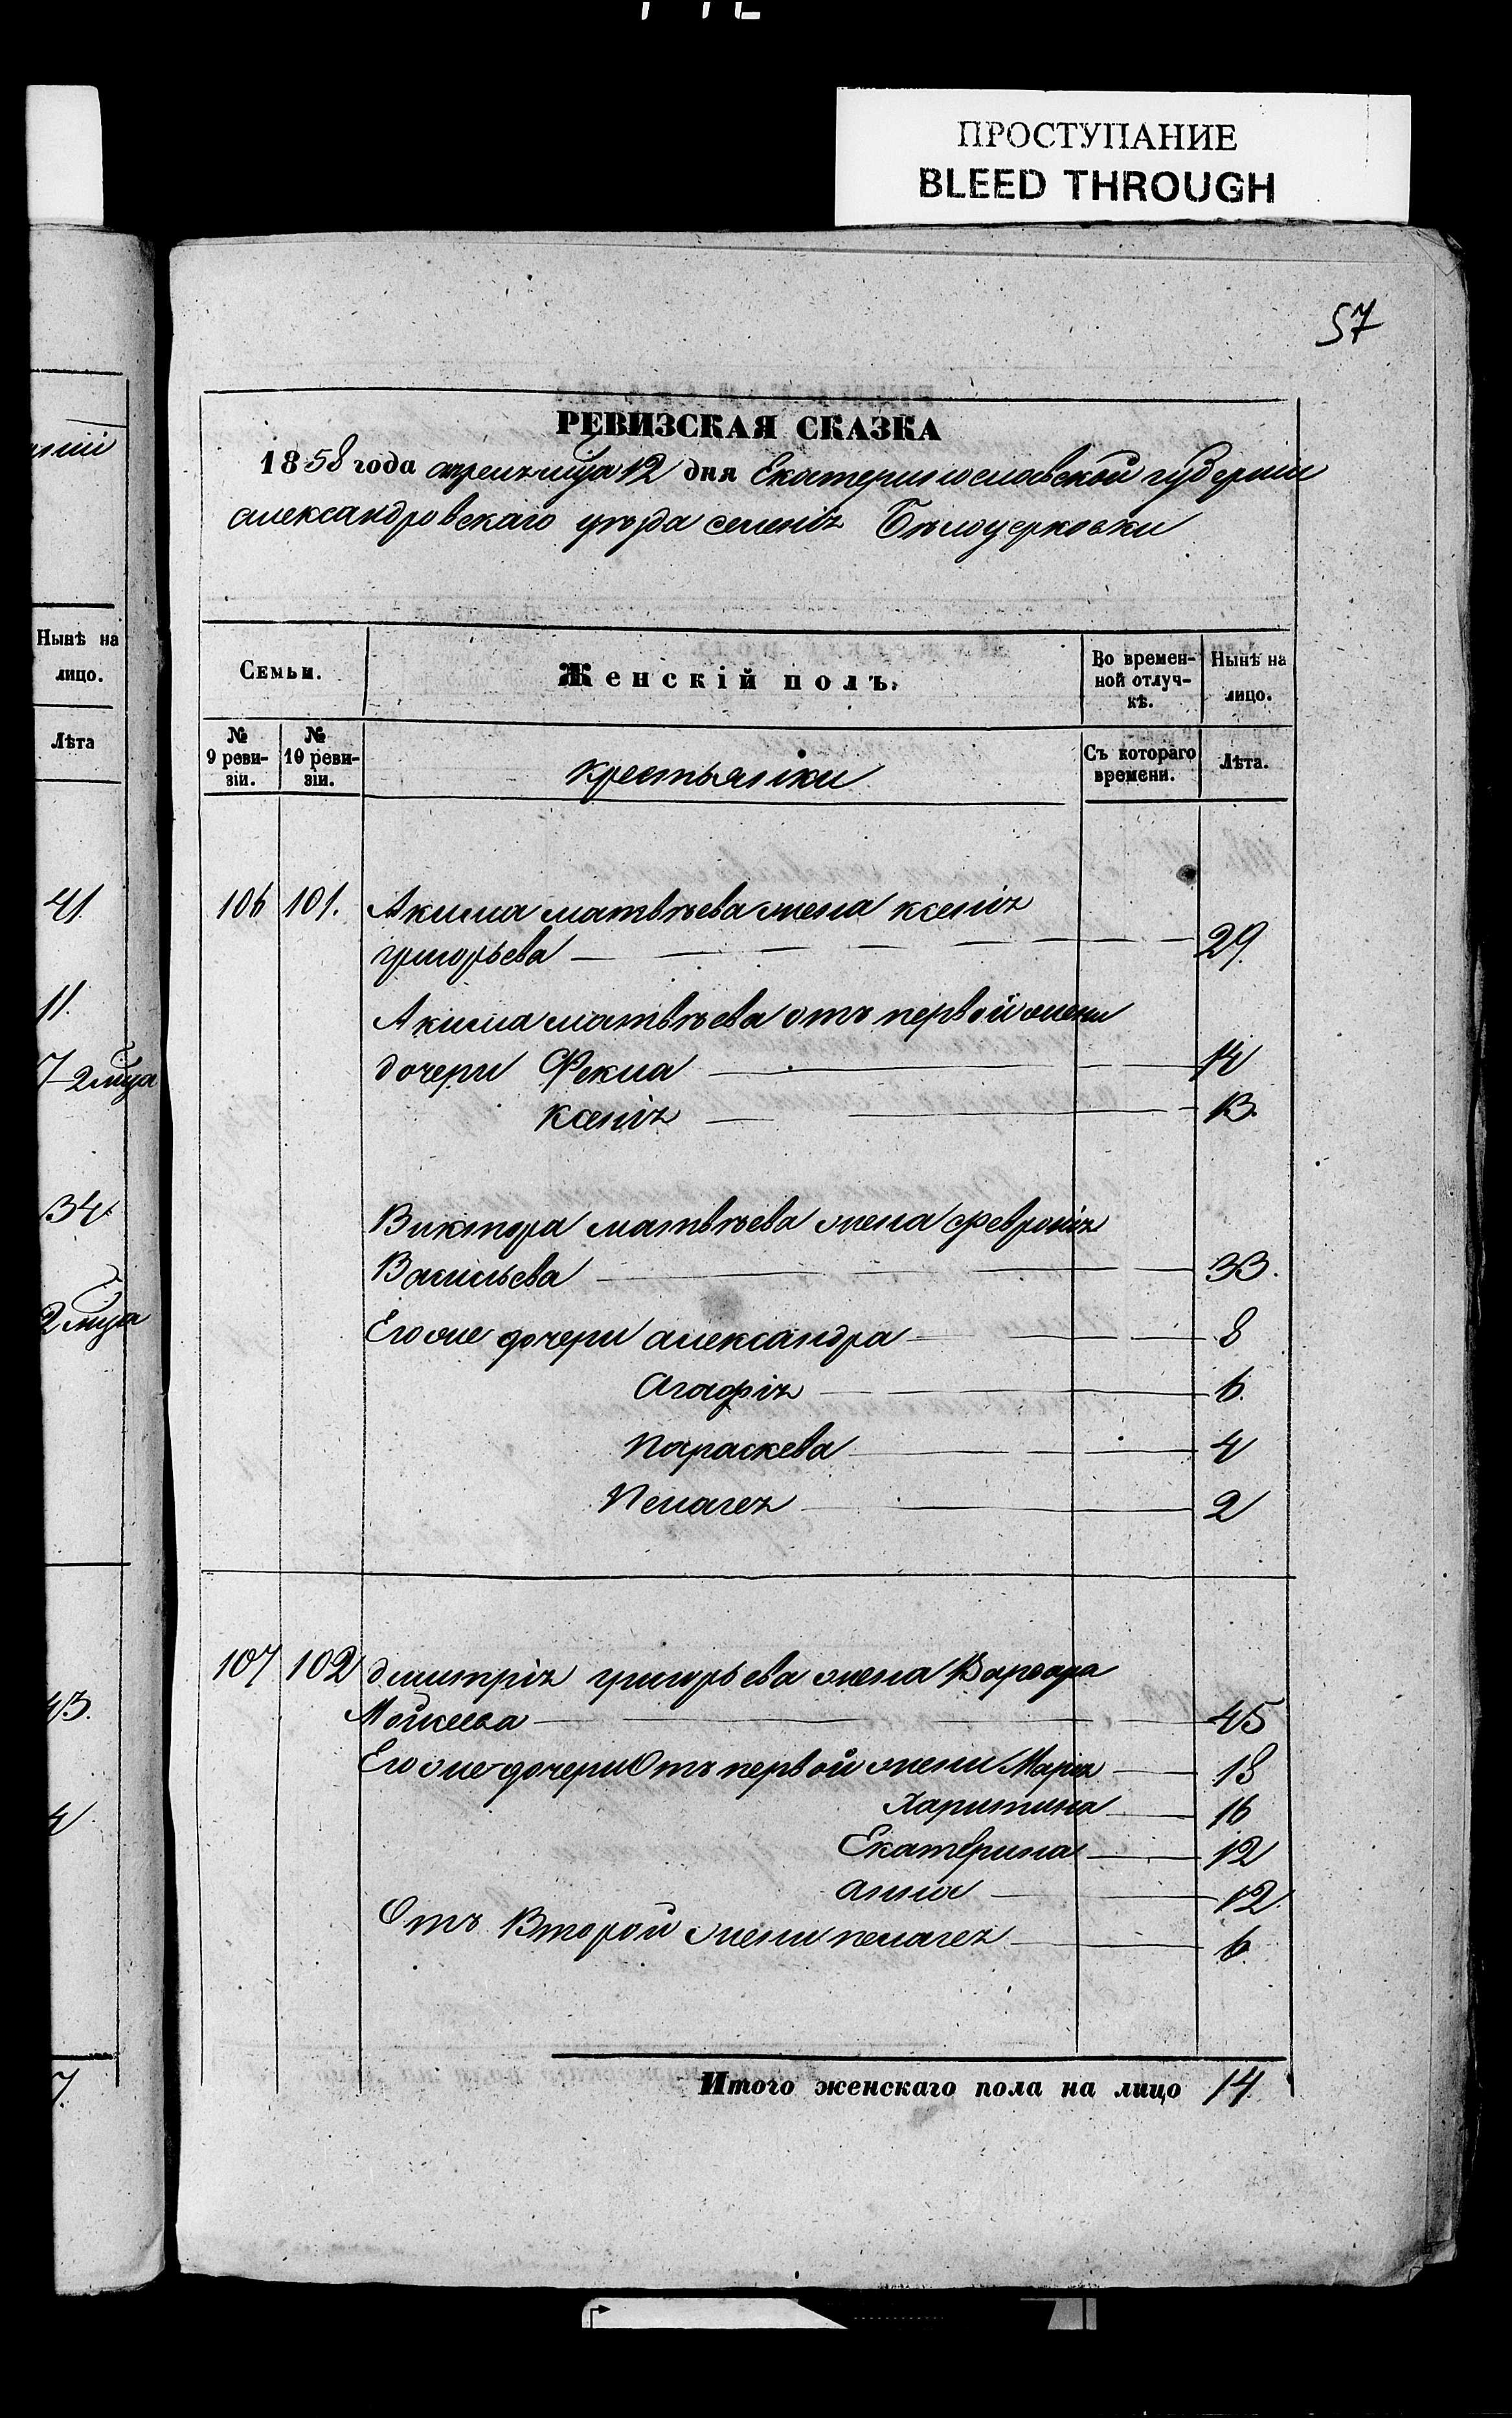 ПРОСТУПАНИЕ
BLEED THROUGH
57
РЕВИЗСКАЯ СКАЗКА
1858 года апреля мѣца 12 дня Екатеринославской губерніи
александровскаго уѣзда селенія Бѣлоцерковки
Семьи.
Женскій полъ.
Во времен-
ной отлуч-
кѣ.
Нынѣ на
лицо.
№
9 реви-
зіи.
№
10 реви-
зіи.
крестьянки
Съ котораго
времени.
Лѣта.
106 101. Акима матвѣева жена ксенія
григорьева 29.
Акима матвѣева отъ первой жены
дочери Фекла 14
ксенія 13.
Виктора матвѣева жена февронія
Васильева 33.
Его же дочери александра 8
Агафія 6.
Параскева 4
Пелагея 2
107 102 дмитрія григорьева жена Варвара
Мойсеева 45
Его же дочери Отъ первой жены Марія 18
Харитина 16
Екатерина 12
анна 12.
Отъ Второй жены пелагея 6
Итого женскаго пола на лицо 14.
Нынѣ на
лицо.
Лѣта
41.
11.
7 2 мѣца
34.
2 мѣца
43.
4
7.